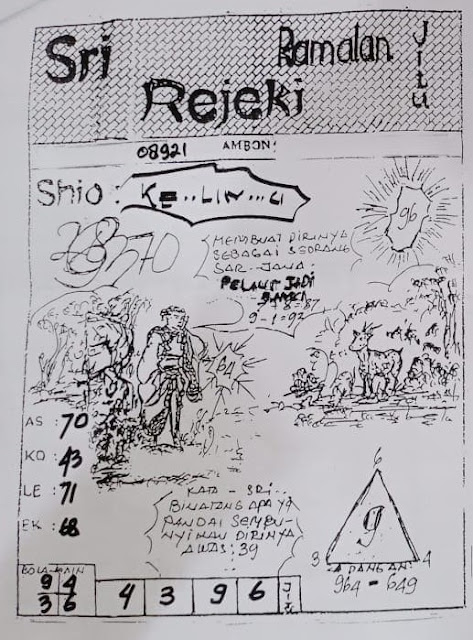 Sri
Ramalan
Jitu
Rejeki
08921 AMBON
Shio : KE..LIN...CI
96
38370
MEMBUAT DIRINYA
SEBAGAI SEORANG
SAR-JANA
PELAUT JADI
9-1=92
64
AS : 70
KO : 43
LE : 71
EK : 68
KATA - SRI..
BINATANG APA YG
PANDAI SEMBU-
NYIKAN DIRINYA
AWAS : 39
6
9
3 4
964 - 649
BOLA MAIN
94
36
4 3 9 6